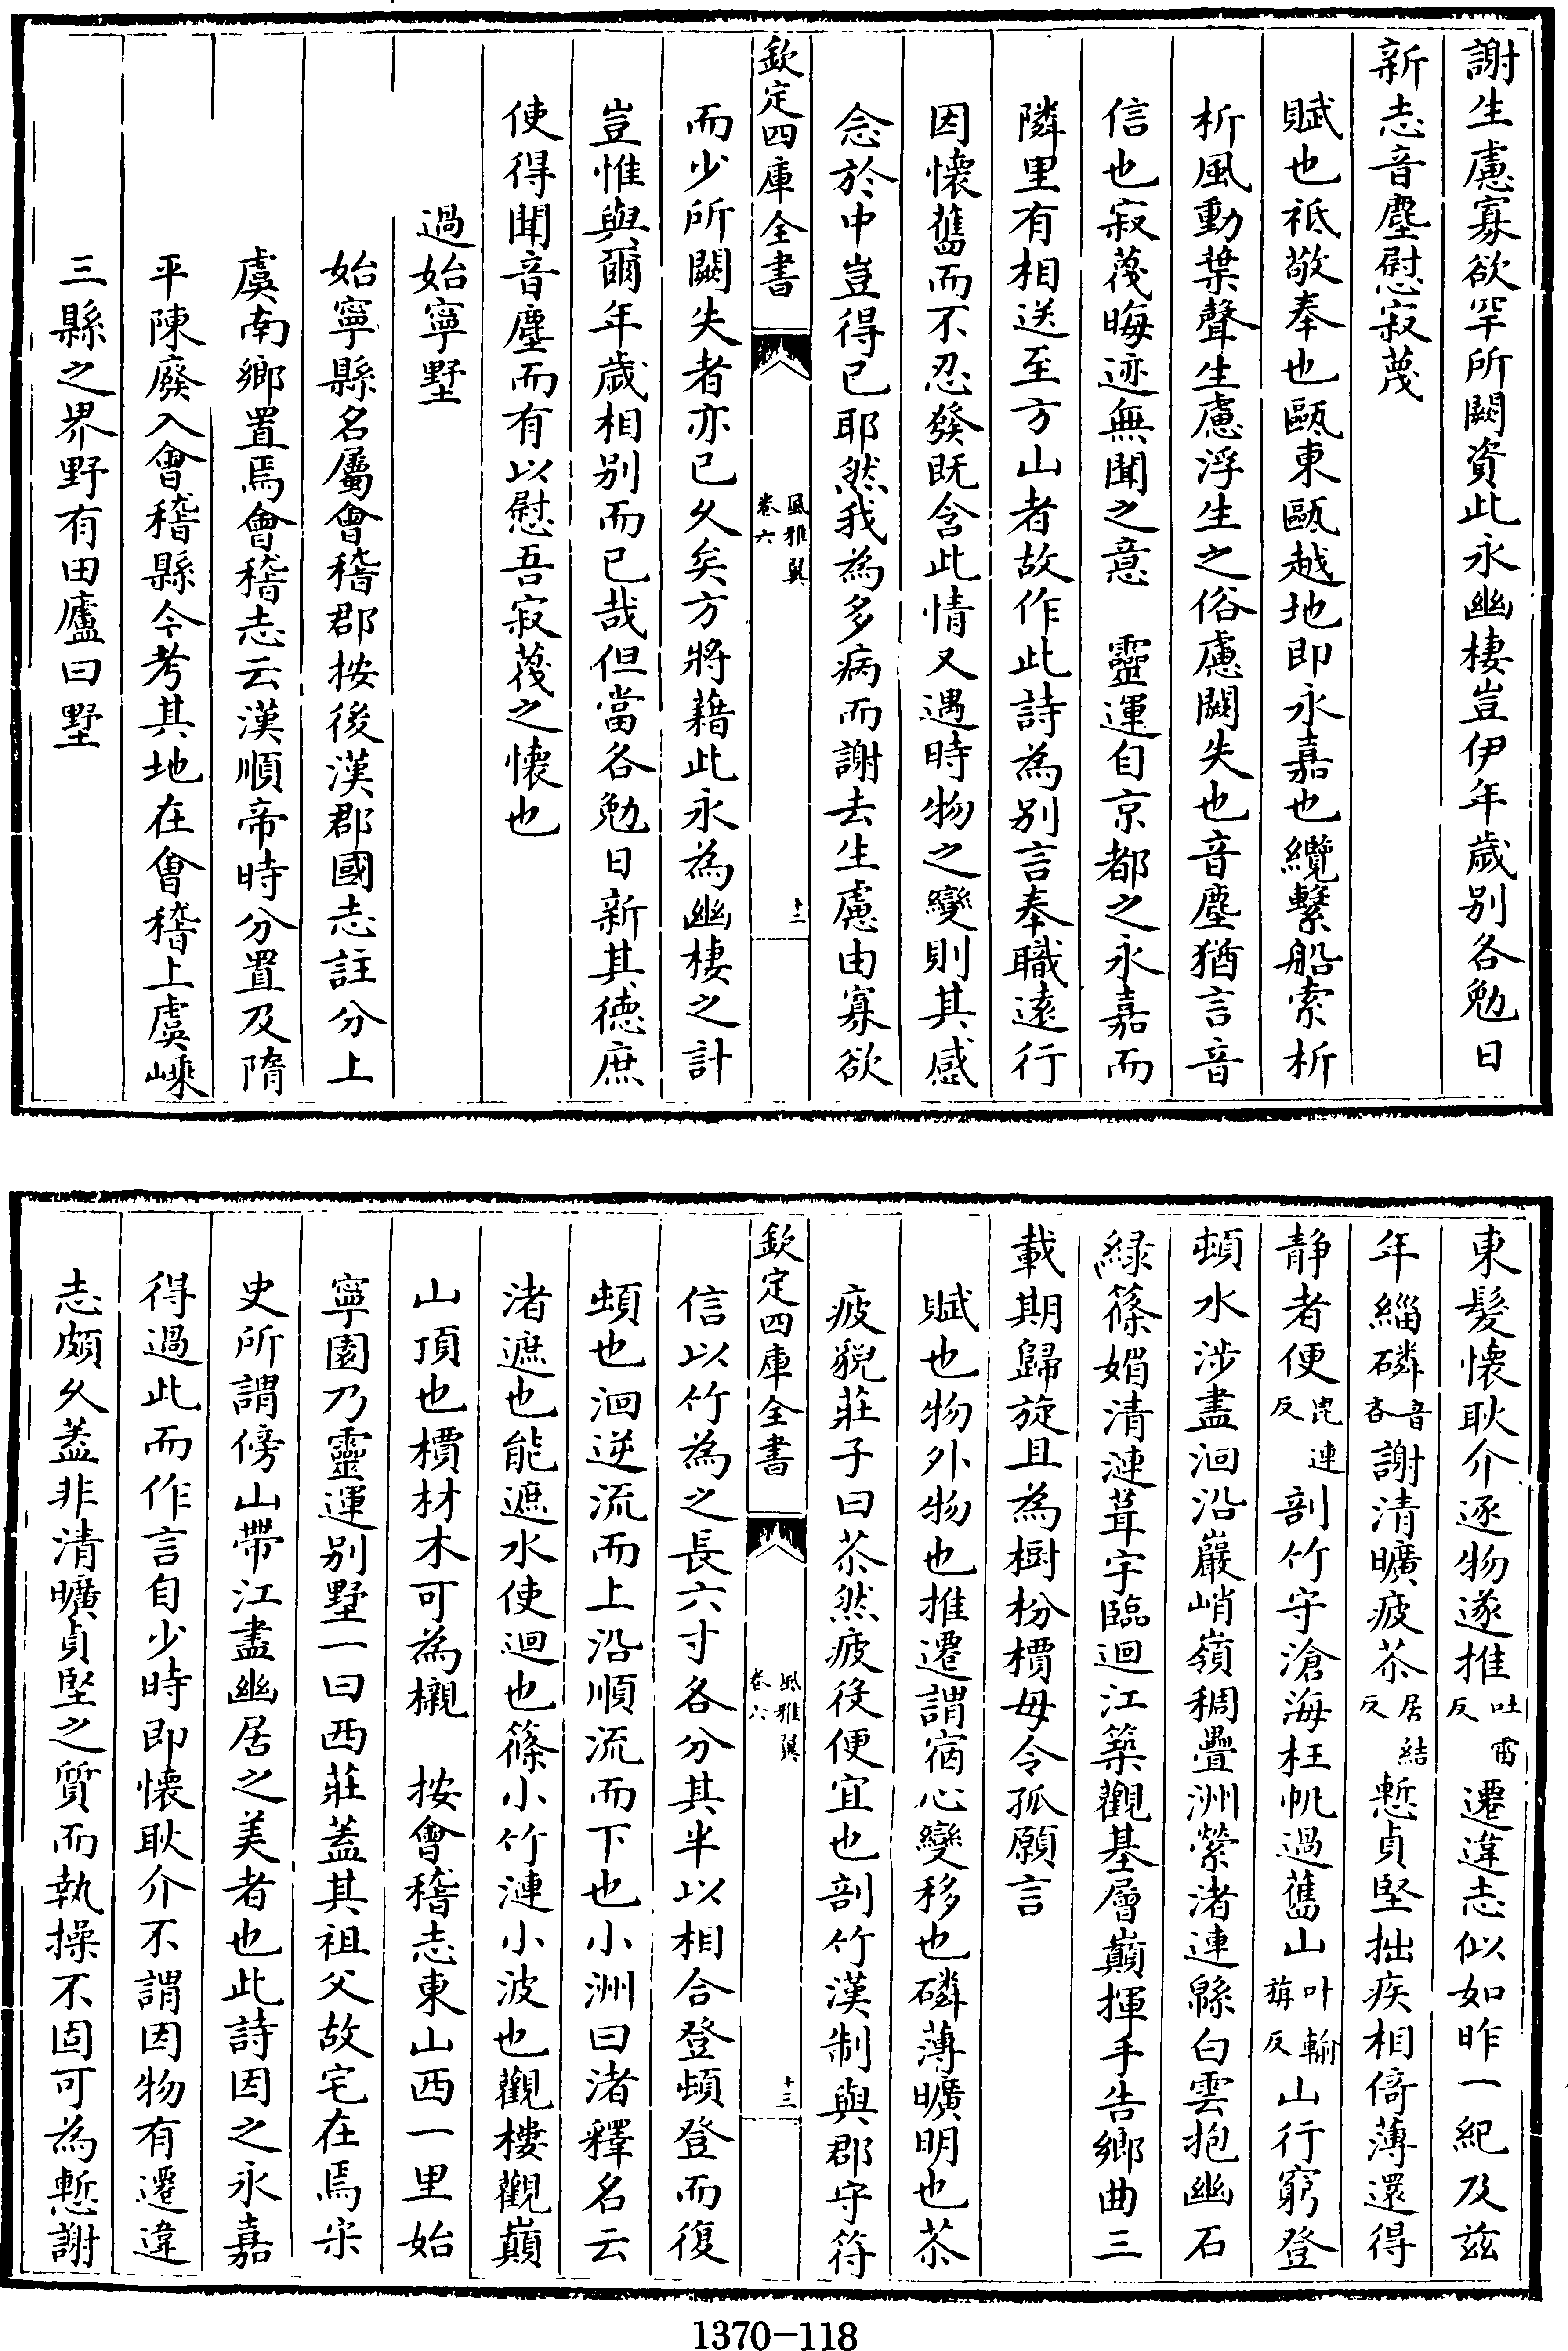 謝生慮寡欲罕所闕資此永幽棲豈伊年歲别各勉日
新志音塵慰寂蔑
賦也祗敬奉也甌東甌越地即永嘉也纜繫船索析
析風動葉聲生慮浮生之俗慮闕失也音塵猶言音
信也寂蔑晦迹無聞之意　靈運自京都之永嘉而
隣里有相送至方山者故作此詩為别言奉職遠行
因懷舊而不忍發既含此情又遇時物之變則其感
念於中豈得已耶然我為多病而謝去生慮由寡欲
欽定四庫全書
風雅翼
卷六
十二
而少所闕失者亦已久矣方將藉此永為幽棲之計
豈惟與爾年歲相别而已哉但當各勉日新其徳庶
使得聞音塵而有以慰吾寂蔑之懷也
過始寧墅
始寧縣名屬會稽郡按後漢郡國志註分上
虞南鄉置焉會稽志云漢順帝時分置及隋
平陳廢入會稽縣今考其地在會稽上虞嵊
三縣之界野有田廬曰墅
東髮懷耿介逐物遂推吐雷反遷違志似如昨一紀及兹
年緇磷音吝謝清曠疲苶居結反慙貞堅拙疾相倚薄還得
静者便毘連反剖竹守滄海枉帆過舊山叶輸旃反山行窮登
頓水涉盡洄沿巖峭嶺稠疊洲縈渚連緜白雲抱幽石
緑篠媚清漣葺宇臨迴江築觀基層巔揮手告鄉曲三
載期歸旋且為樹枌檟毋令孤願言
賦也物外物也推遷謂宿心變移也磷薄曠明也苶
疲貌莊子曰苶然疲役便宜也剖竹漢制與郡守符
欽定四庫全書
風雅翼
卷六
十三
信以竹為之長六寸各分其半以相合登頓登而復
頓也洄逆流而上沿順流而下也小洲曰渚釋名云
渚遮也能遮水使迴也篠小竹漣小波也觀樓觀巔
山頂也檟材木可為櫬　按會稽志東山西一里始
寧園乃靈運别墅一曰西莊蓋其祖父故宅在焉宋
史所謂傍山帶江盡幽居之美者也此詩因之永嘉
得過此而作言自少時即懷耿介不謂因物有遷違
志頗久蓋非清曠貞堅之質而執操不固可為慙謝
1370-118